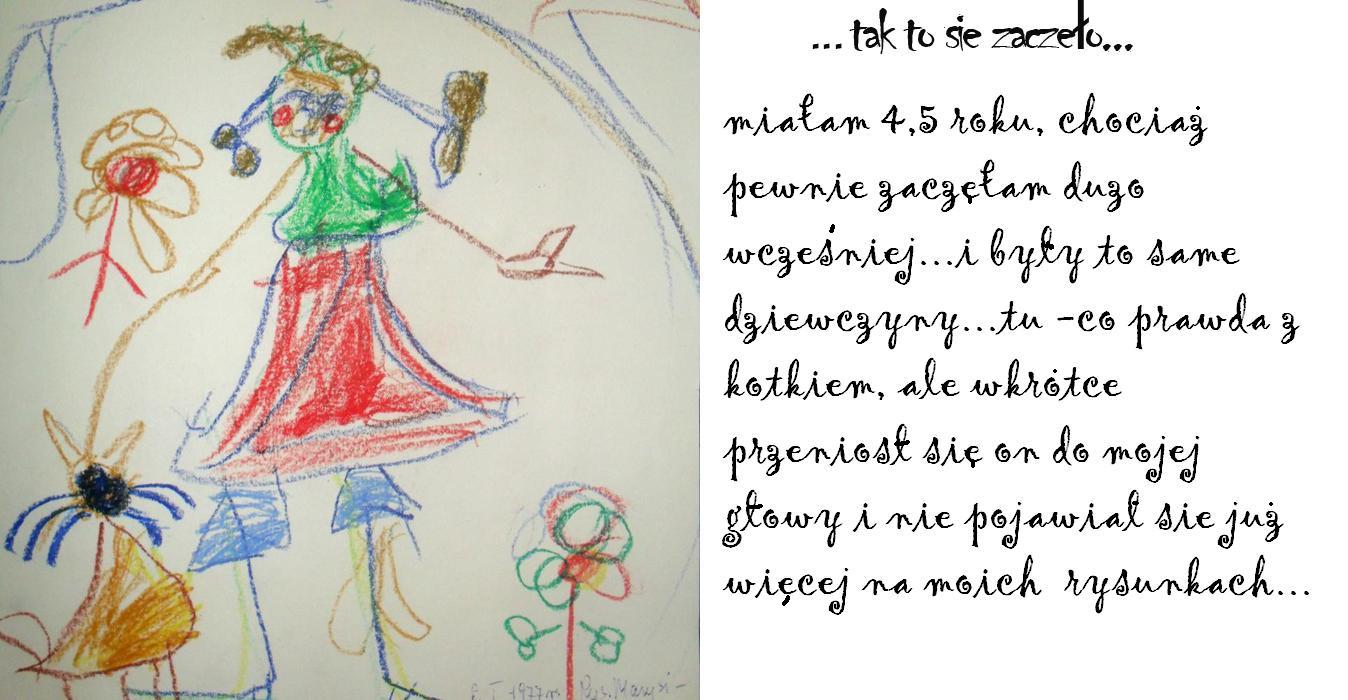 ...tak to sie zaczeło...
miałam 4,5 roku, chociaż
pewnie zaczęłam duzo
wcześniej...i były to same
dziewczyny...tu -co prawda z
kotkiem, ale wkrótce
przeniosł się on do mojej
głowy i nie pojawiał sie już
więcej na moich rysunkach...
1977r. Rys. Marysi-